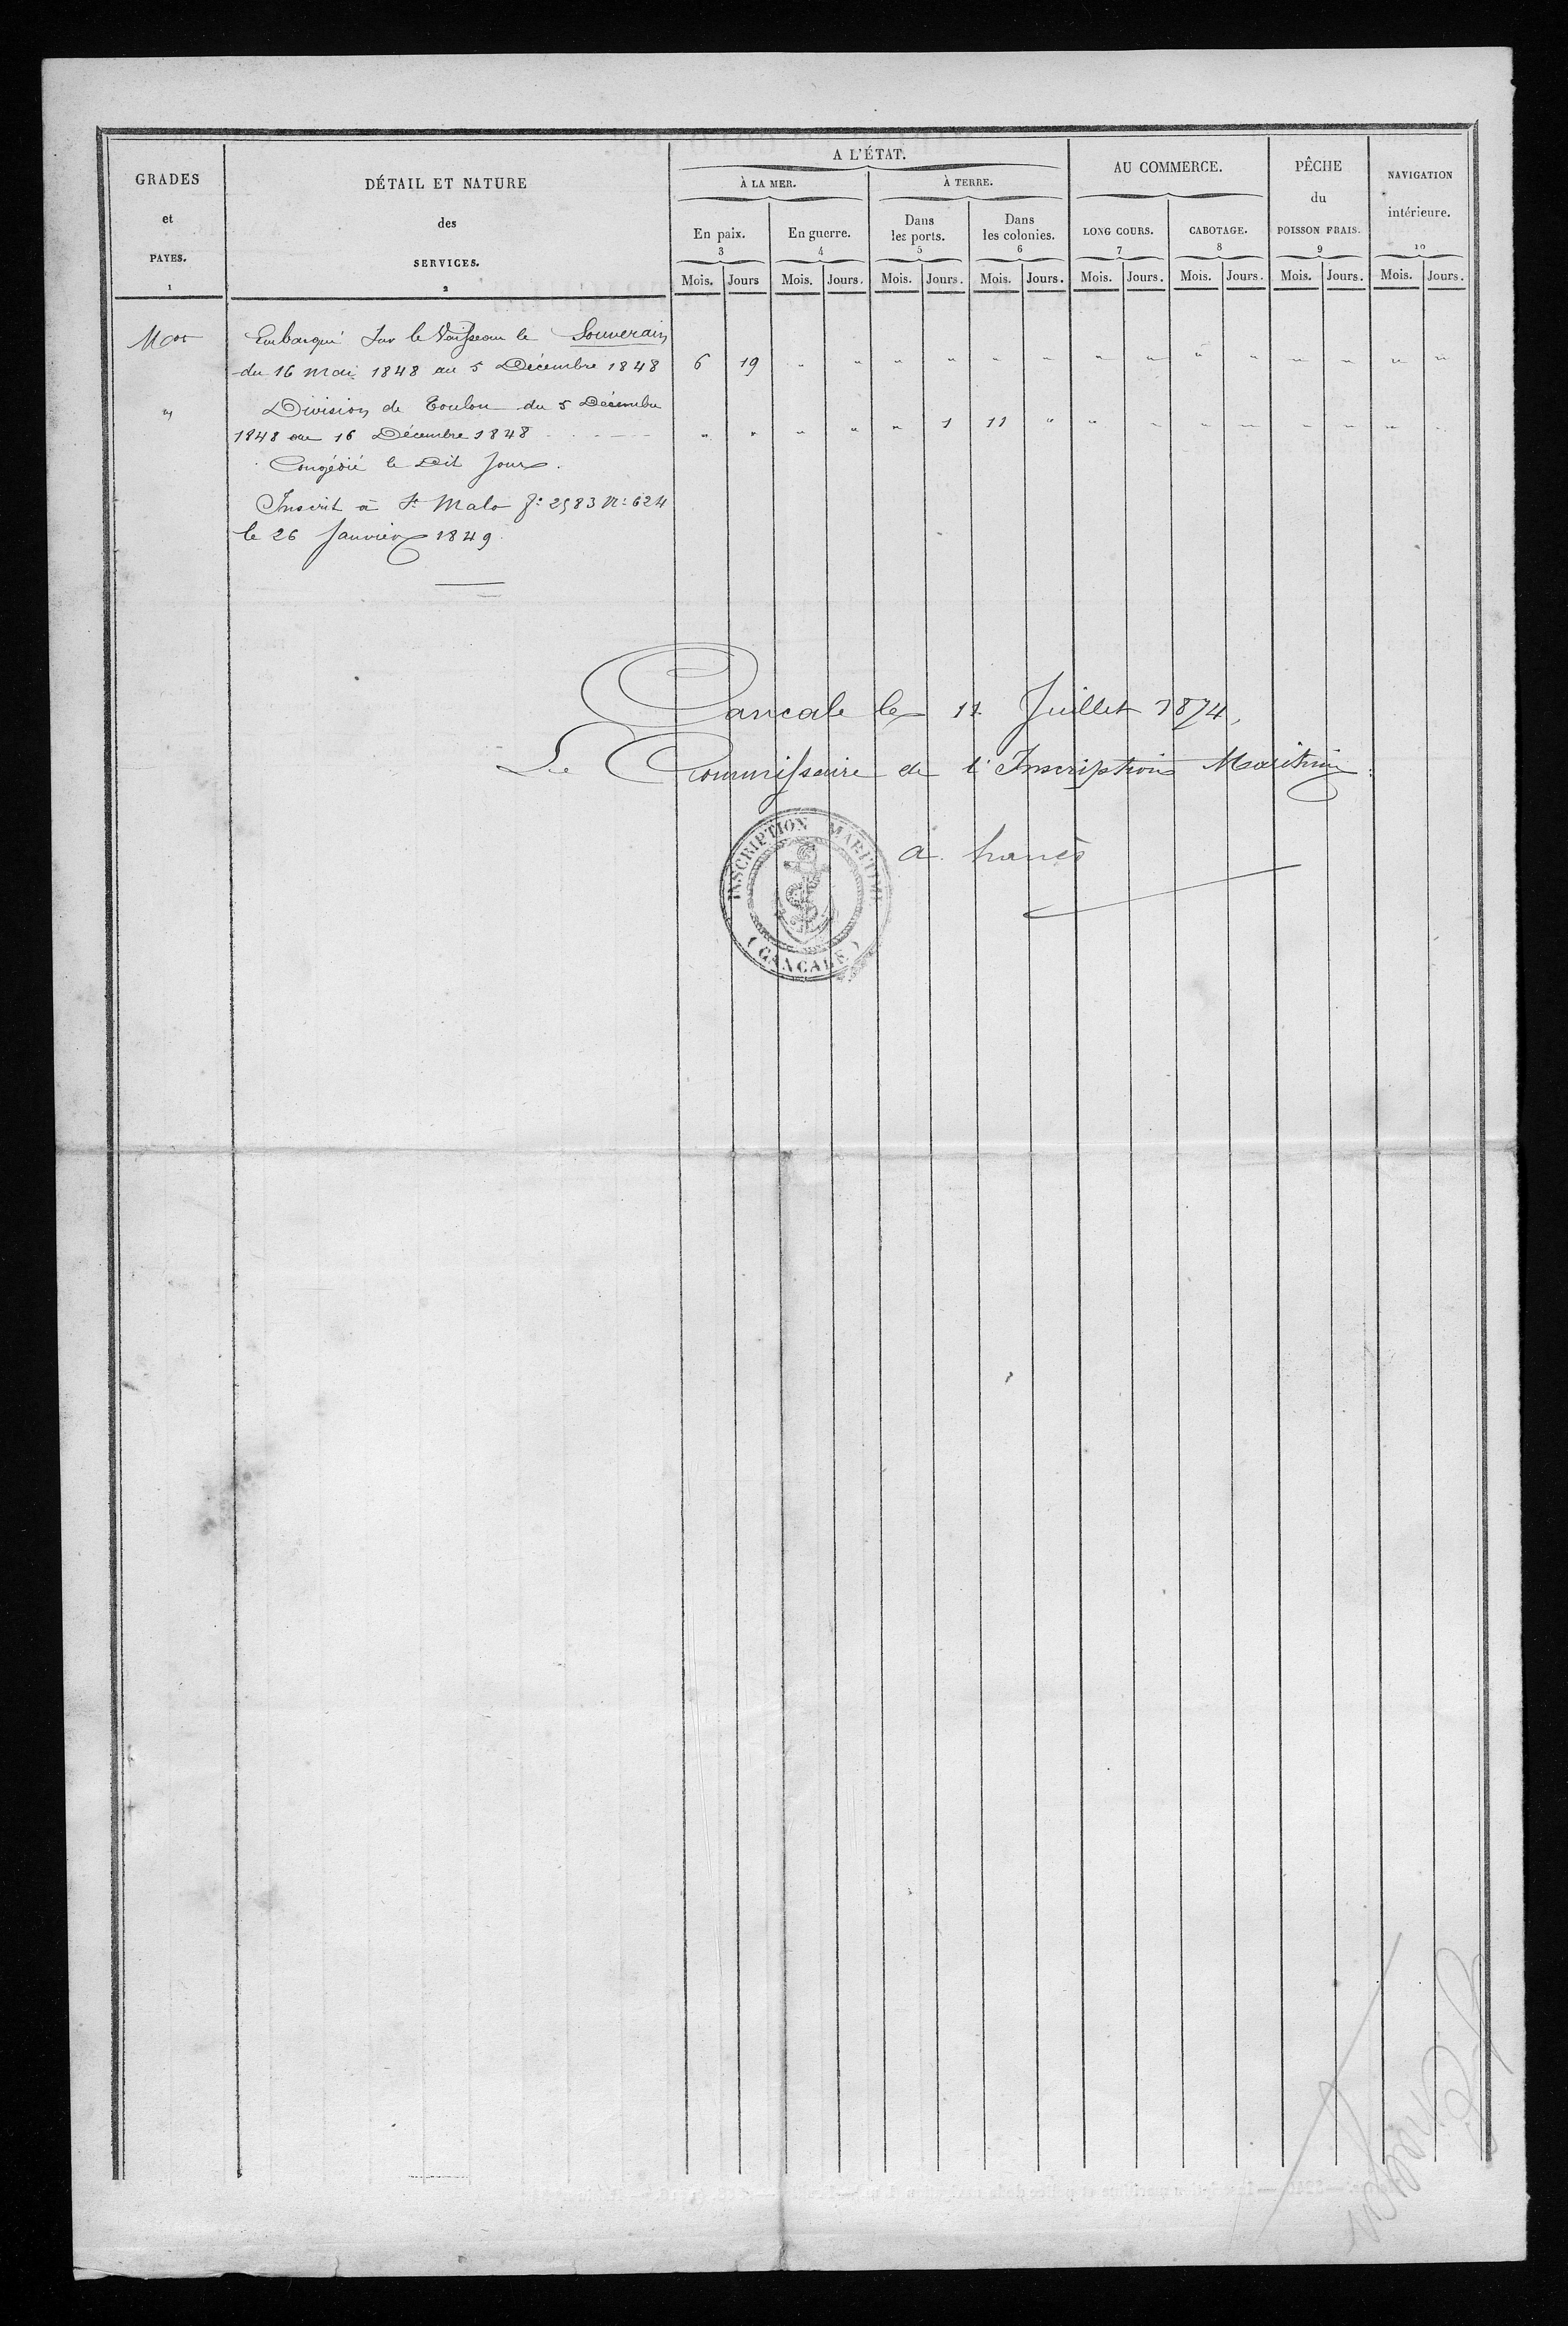 A L'ÉTAT.
AU COMMERCE.
PÊCHE
du
POISSON FRAIS.
9
NAVIGATION
intérieure.
10
GRADES
et
PAYES.
1
DÉTAIL ET NATURE
des
SERVICES.
2
À LA MER.
À TERRE.
En paix.
3
En guerre.
4
Dans
les ports.
5
Dans
les colonies.
6
LONG COURS.
7
CABOTAGE.
8
Mois. Jours Mois. Jours. Mois. Jours. Mois. Jours. Mois. Jours. Mois. Jours. Mois. Jours. Mois. Jours.
Mot Embarqué sur le Vaisseau le Souverain
du 16 Mai 1848 au 5 Décembre 1848 6 19 " " " " " " " " " " " " " "
" Division de Toulon du 5 Décembre
1848 au 16 Décembre 1848 " " " " " 1 11 " " " " " " " " "
Congédié le Dit Jour.
Inscrit à St Malo fo 2583 No 624
le 26 Janvier 1849.
Cancale le 11 Juillet 1874,
Le Commissaire de l'Inscription Maritime
INSCRIPTION MARITIME
(CANCALE)